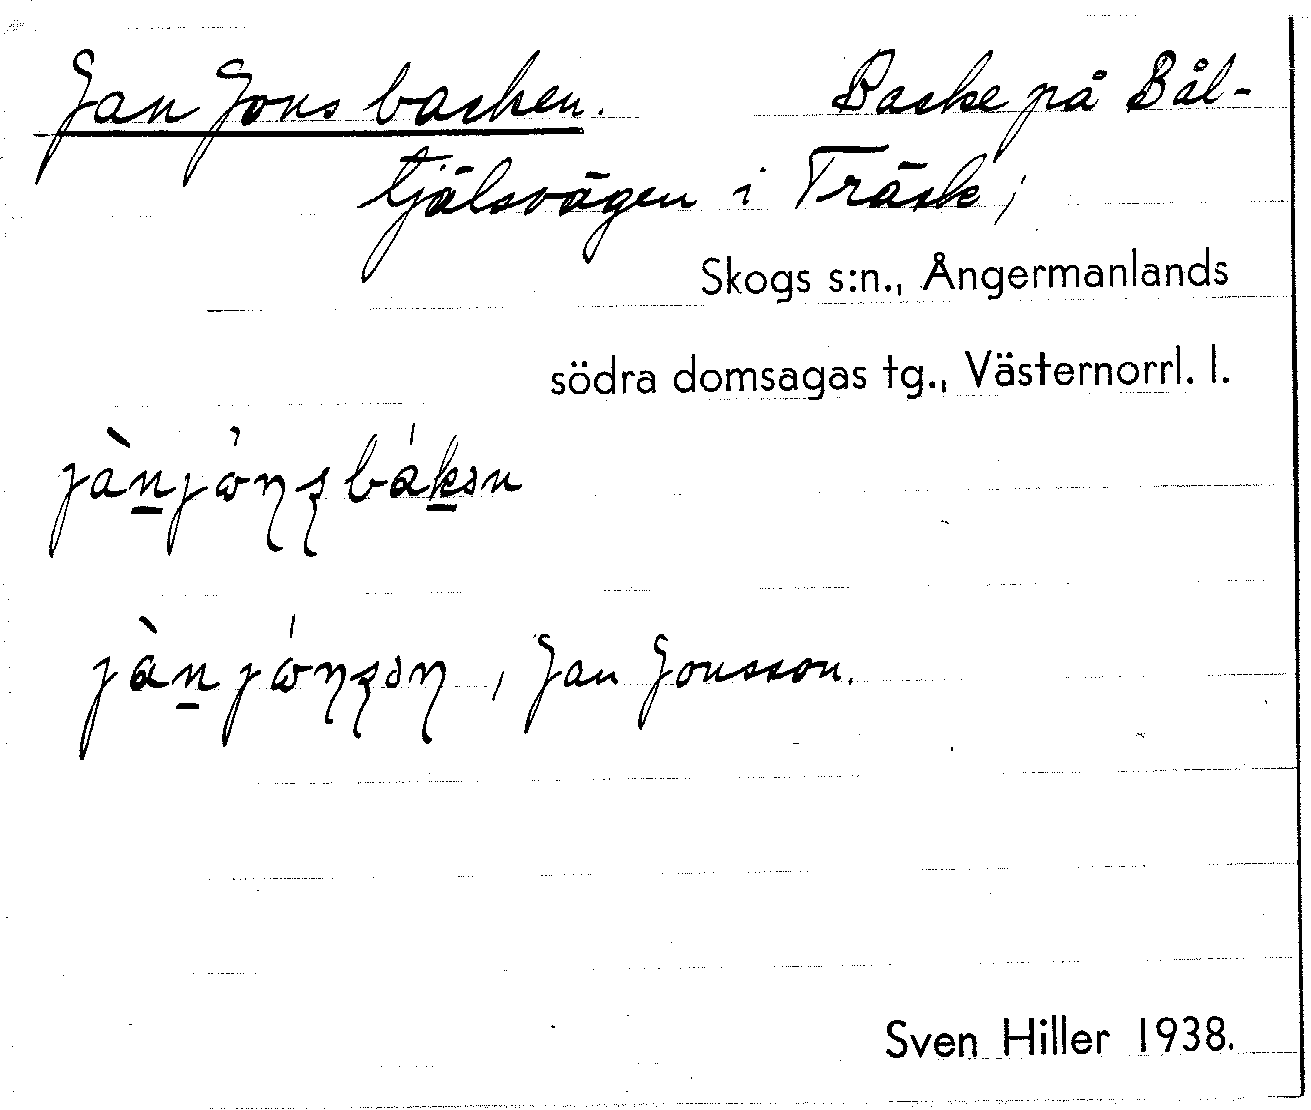 Jan Jonsbacken. Backe på Bål-
tjälsvägen i Träsk;
Skogs s:n., Ångermanlands
södra domsagas tg., Västernorrl. l.
, Jan Jonsson.
Sven Hiller 1938.